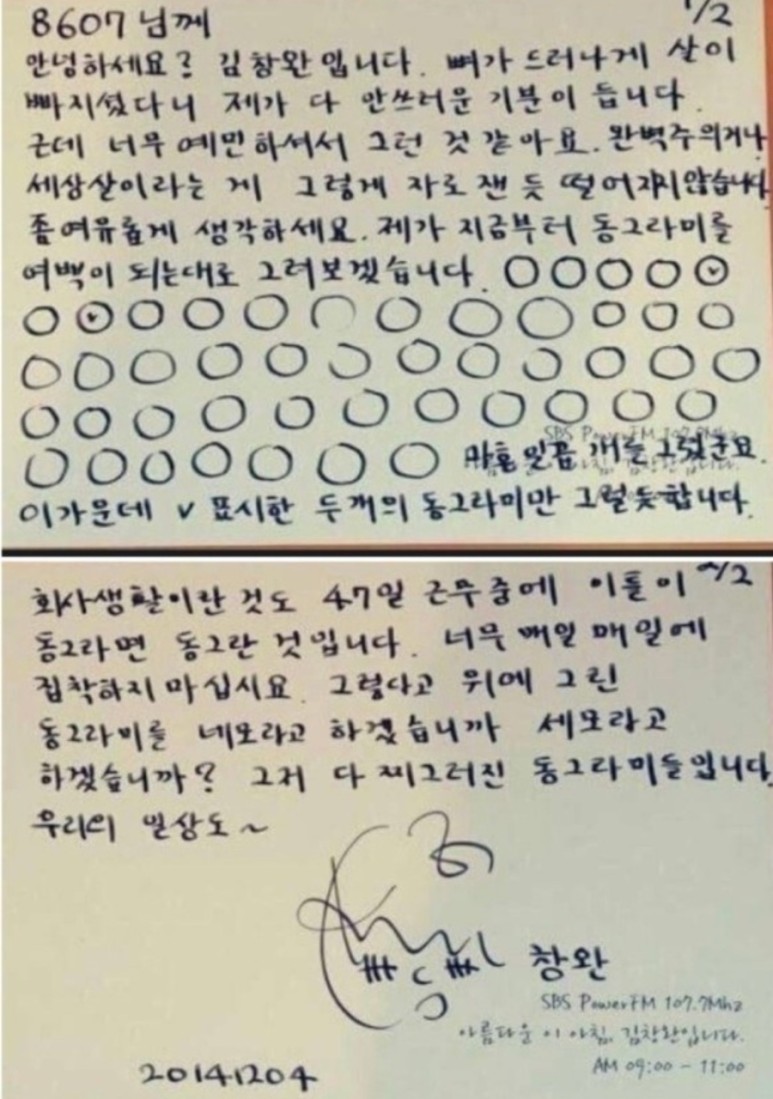 1/2
8607님께
안녕하세요? 김창완입니다. 뼈가 드러나게 살이
빠지셨다니 제가 다 안쓰러운 기분이 듭니다.
근데 너무 예민하셔서 그런 것 같아요. 완벽주의거나
세상살이라는 게 그렇게 자로 잰 듯 떨어지지않습니다
좀 여유롭게 생각하세요. 제가 지금부터 동그라미를
여백이 되는대로 그려보겠습니다.
SBS PowerFM 107.7Mhz
마흔 일곱 개를 그렸군요.
이가운데 v 표시한 두개의 동그라미만 그럴듯합니다.
2/2
회사생활이란 것도 47일 근무 중에 이틀이
동그라면 동그란 것입니다. 너무 매일 매일에
집착하지 마십시요. 그렇다고 위에 그린
동그라미를 네모라고 하겠습니까 세모라고
하겠습니까? 그저 다 찌그러진 동그라미들입니다.
우리의 일상도~
창완
SBS PowerFM 107.7Mhz
아름다운 이 아침, 김창완입니다.
AM 09:00 - 11:00
20141204